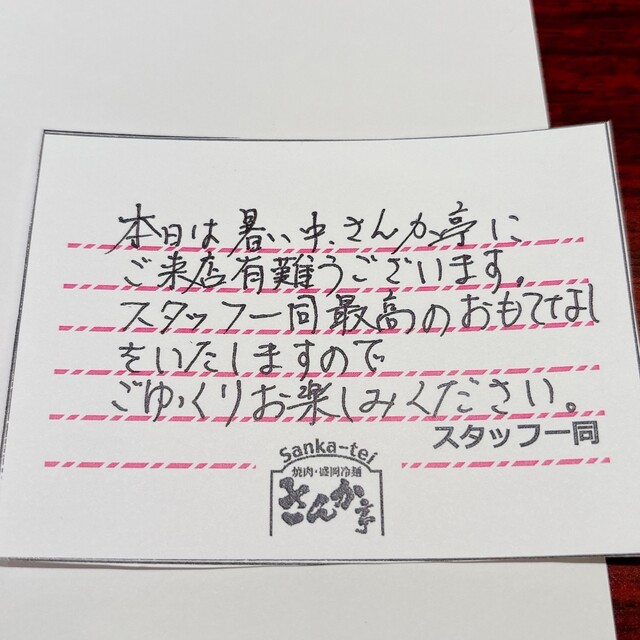 本日は暑い中、さんか亭に
ご来店有難うございます。
スタッフ一同最高のおもてなし
をいたしますので
ごゆっくりお楽しみください。
スタッフ一同
Sanka-tei
焼肉・盛岡冷麺
さんか亭